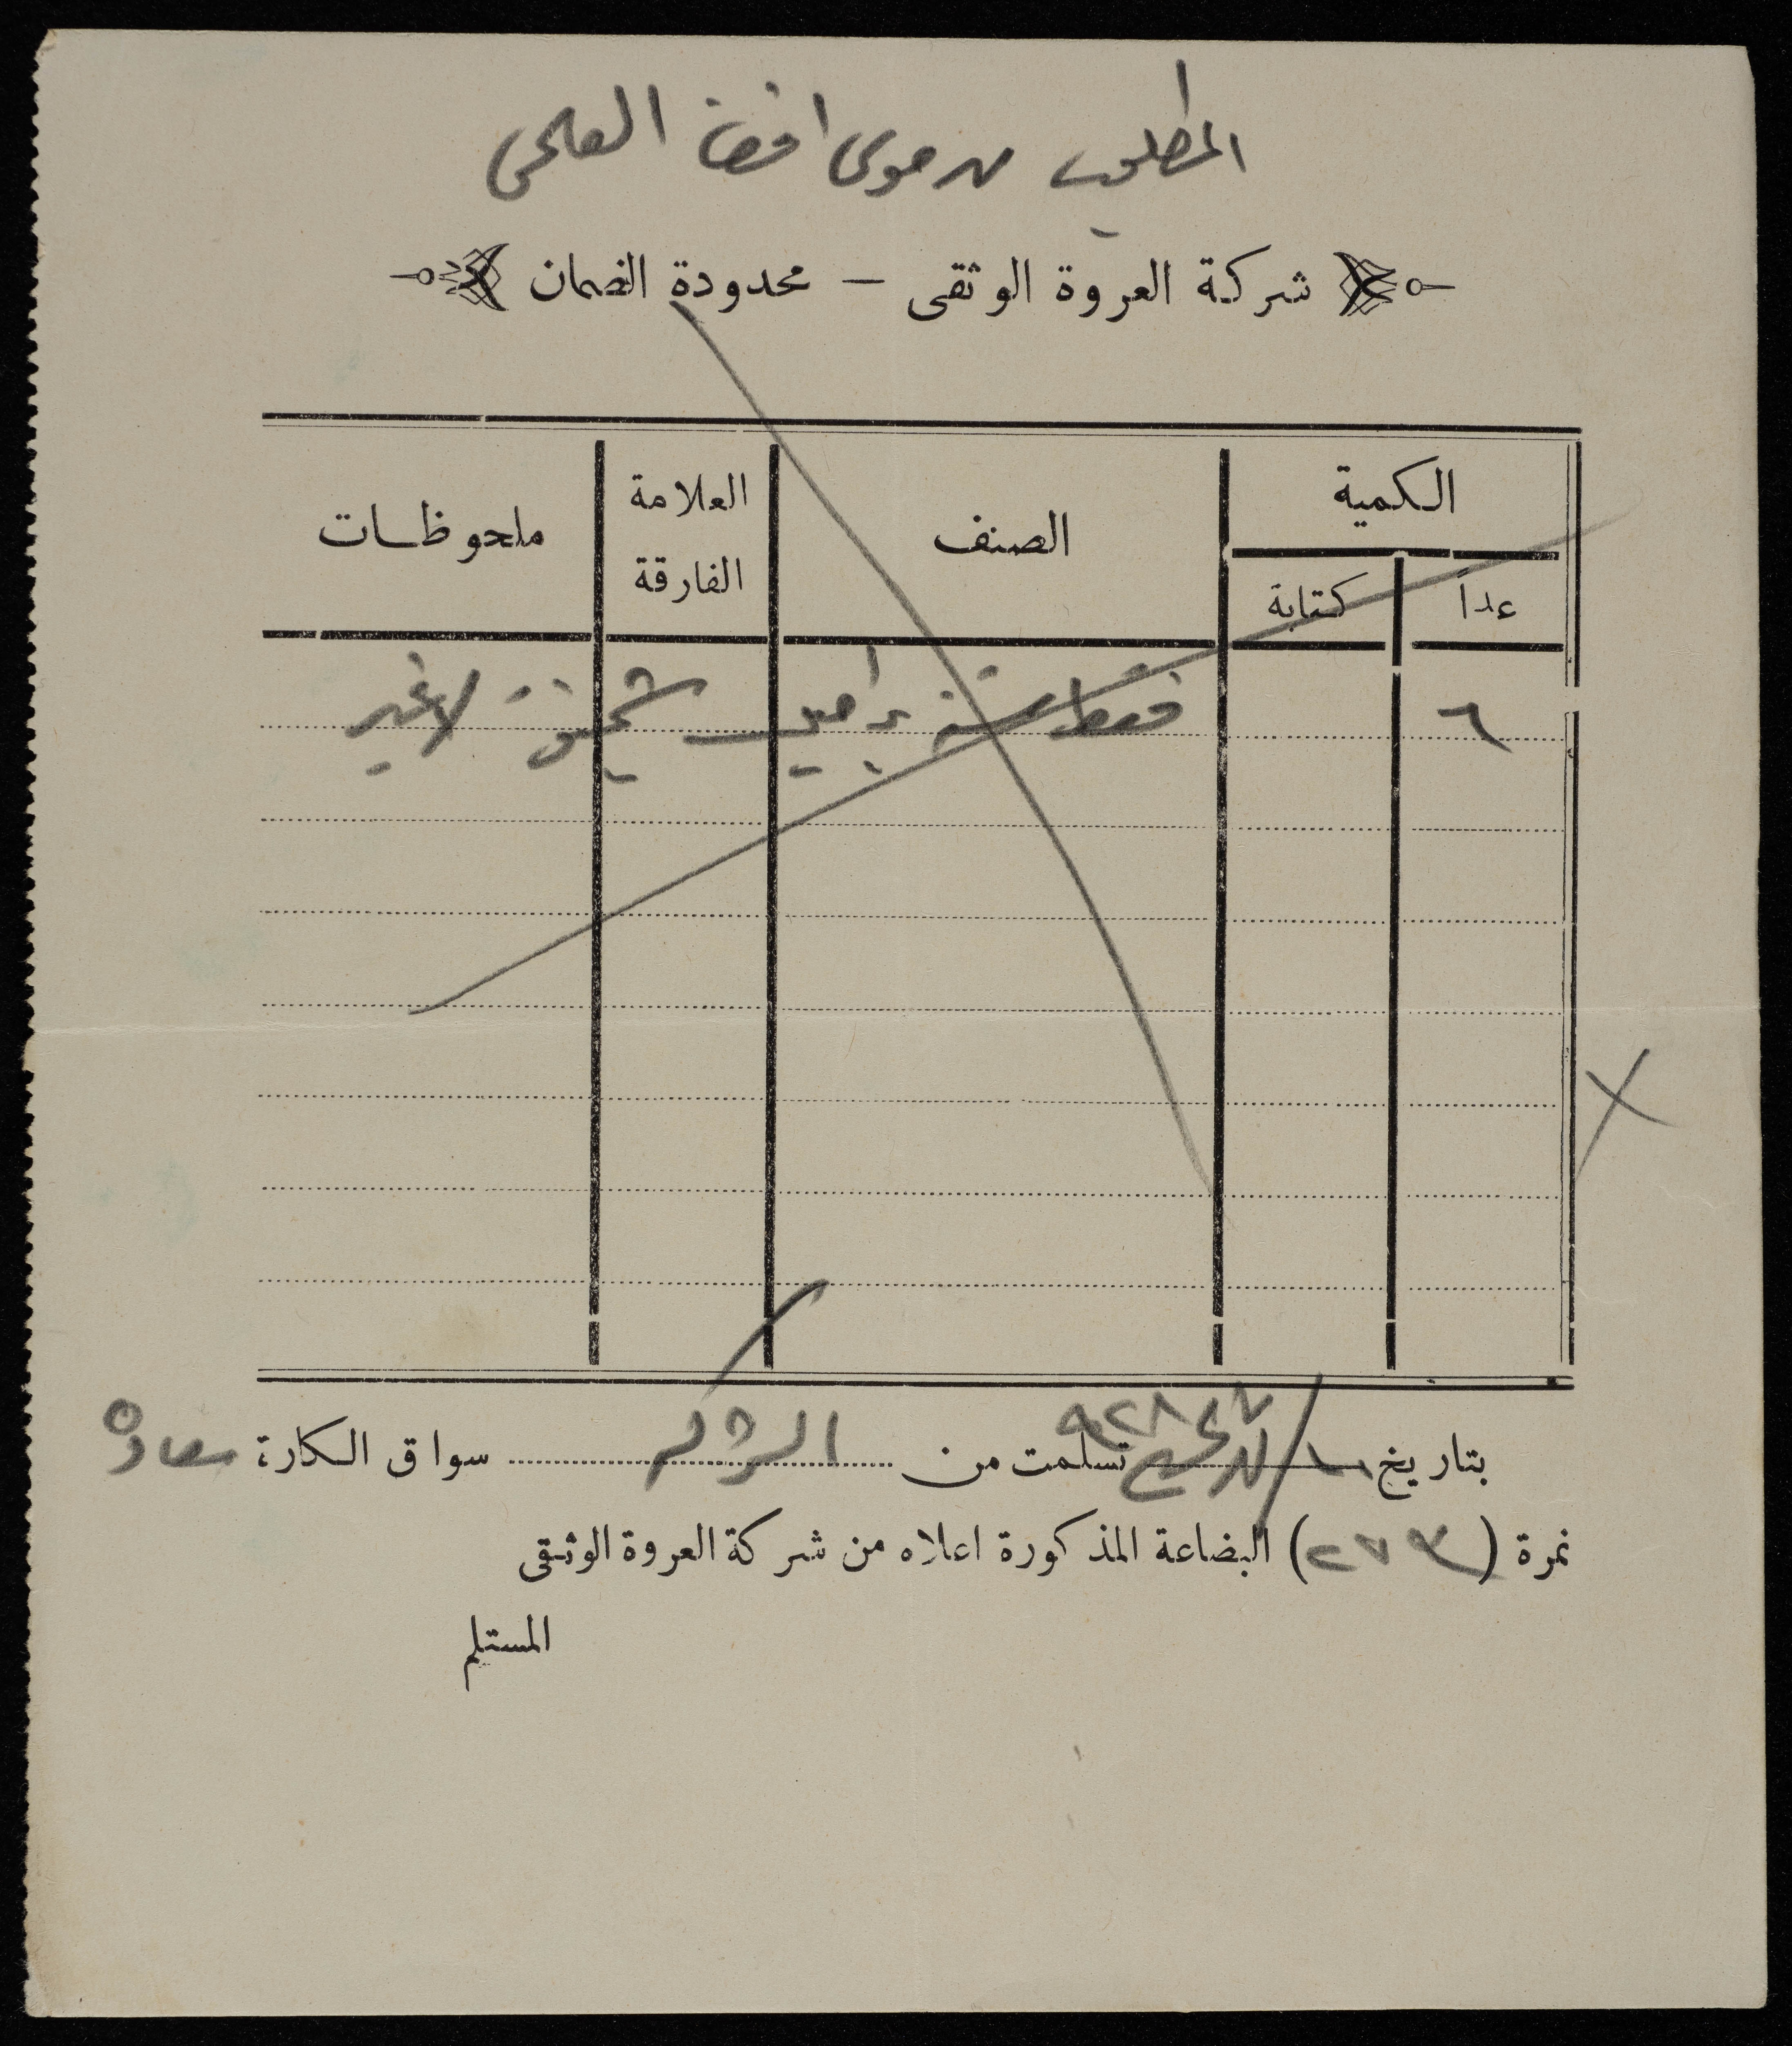 المطلوب من موسى افندي العلمي
شركة العروة الوثقى – محدودة الضمان
الكمية
عداً كتابة الصنف العلامة الفارقة ملحوظات
٦ فقط ستة براميل لا غير
بتاريخ تسلمت من سواق الكارة سعاده
نمرة (٢٧٣) البضاعة المذكورة اعلاه من شركة العروة الوثقى
المستلم